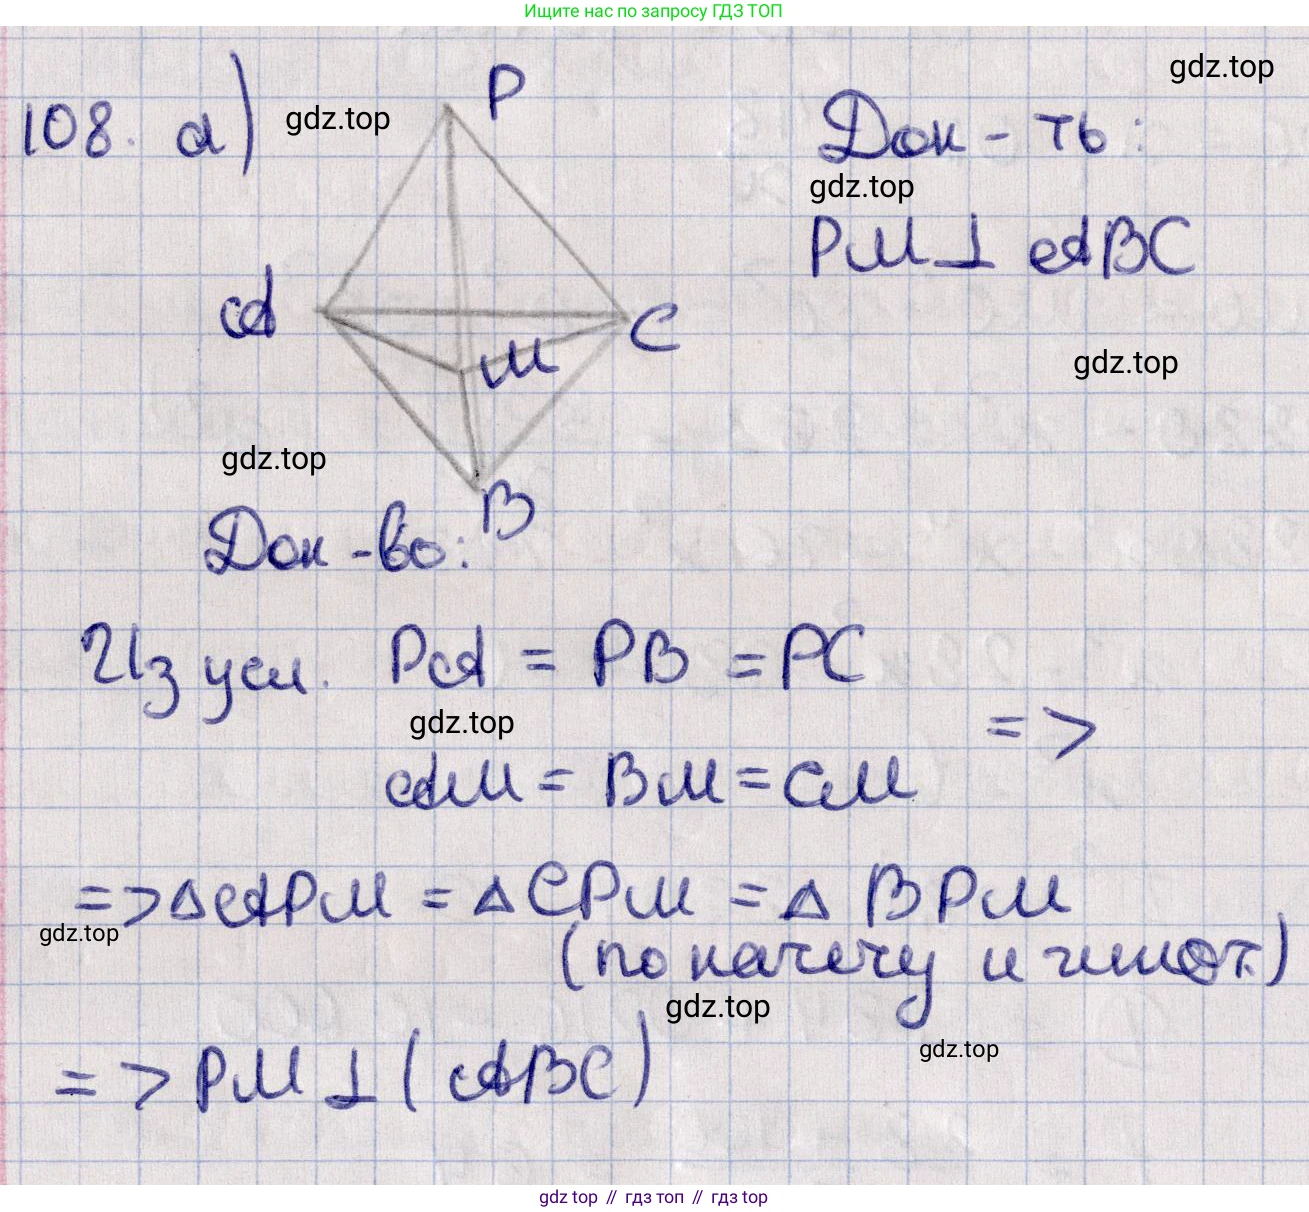 Ищите нас по запросу ГДЗ ТОП
gdz.top
108. а) gdz.top
P
Док-ть:
gdz.top
PM⊥ ABC
A
C
M
gdz.top
gdz.top
B
Док-во:
Из усл. PA = PB = PC
gdz.top
=>
AM = BM = CM
=> △APM = △CPM = △ BPM
gdz.top
(по катету и гипот.)
gdz.top
gdz.top
=> PM⊥(ABC)
gdz top // гдз топ // гдз top